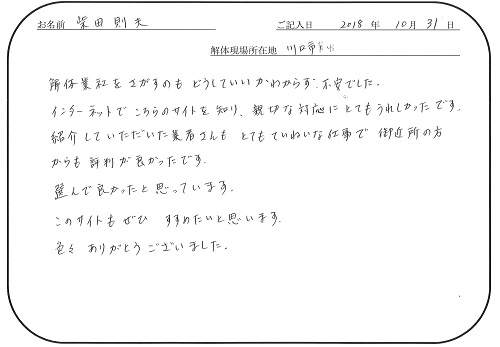 お名前 柴田則夫 ご記入日 2018 年 10 月 31 日
解体現場所在地 川口市
解体業社をさがすのも どうしていいかわからず、不安でした。
インターネットで こちらのサイトを知り、親切な対応に とてもうれしかったです。
紹介していただいた業者さんも とてもていねいな仕事で 御近所の方
からも評判が良かったです。
選んで良かったと思っています。
このサイトも ぜひ すすめたいと思います。
色々 ありがとうございました。